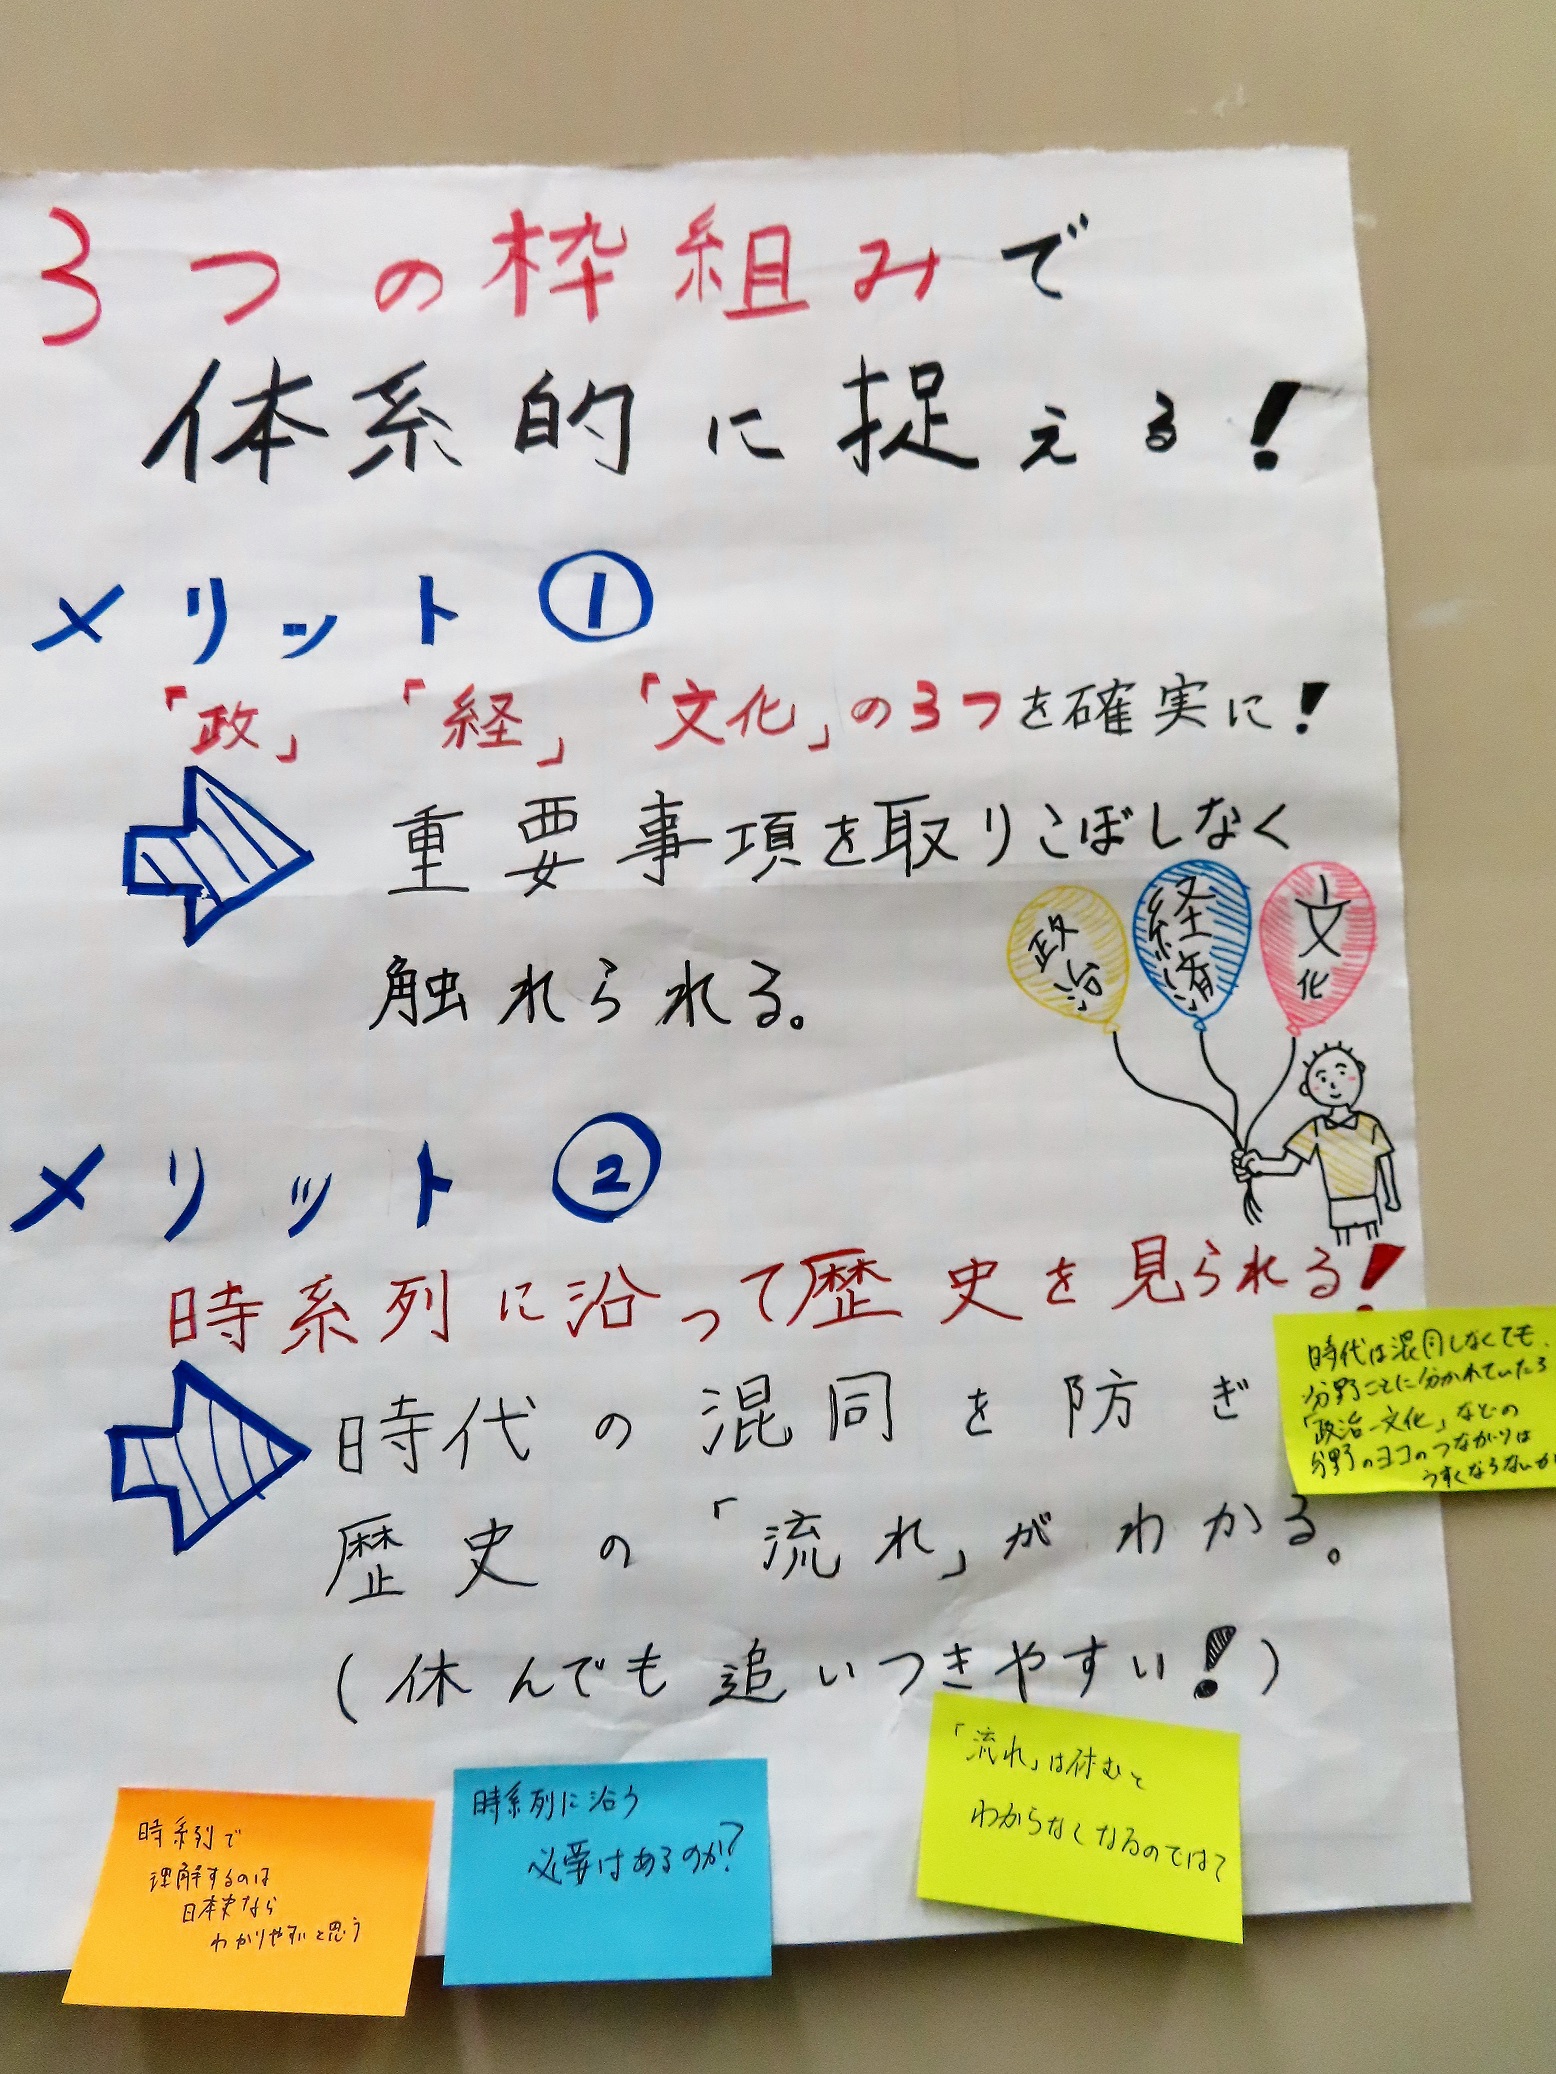 3つの枠組みで
体系的に捉える!
メリット①
「政」「経」「文化」の3つを確実に!
重要事項を取りこぼしなく
触れられる。
政治
経済
文化
メリット②
時系列に沿って歴史を見られる!
時代の混同を防ぎ
歴史の「流れ」がわかる。
(休んでも追いつきやすい!)
時代は混同しなくても、
分野ごとに分かれていたら
「政治-文化」などの
分野のヨコのつながりは
うすくならないか
「流れ」は休むと
わからなくなるのでは?
時系列に沿う
必要はあるのか?
時系列で
理解するのは
日本史なら
わかりやすいと思う